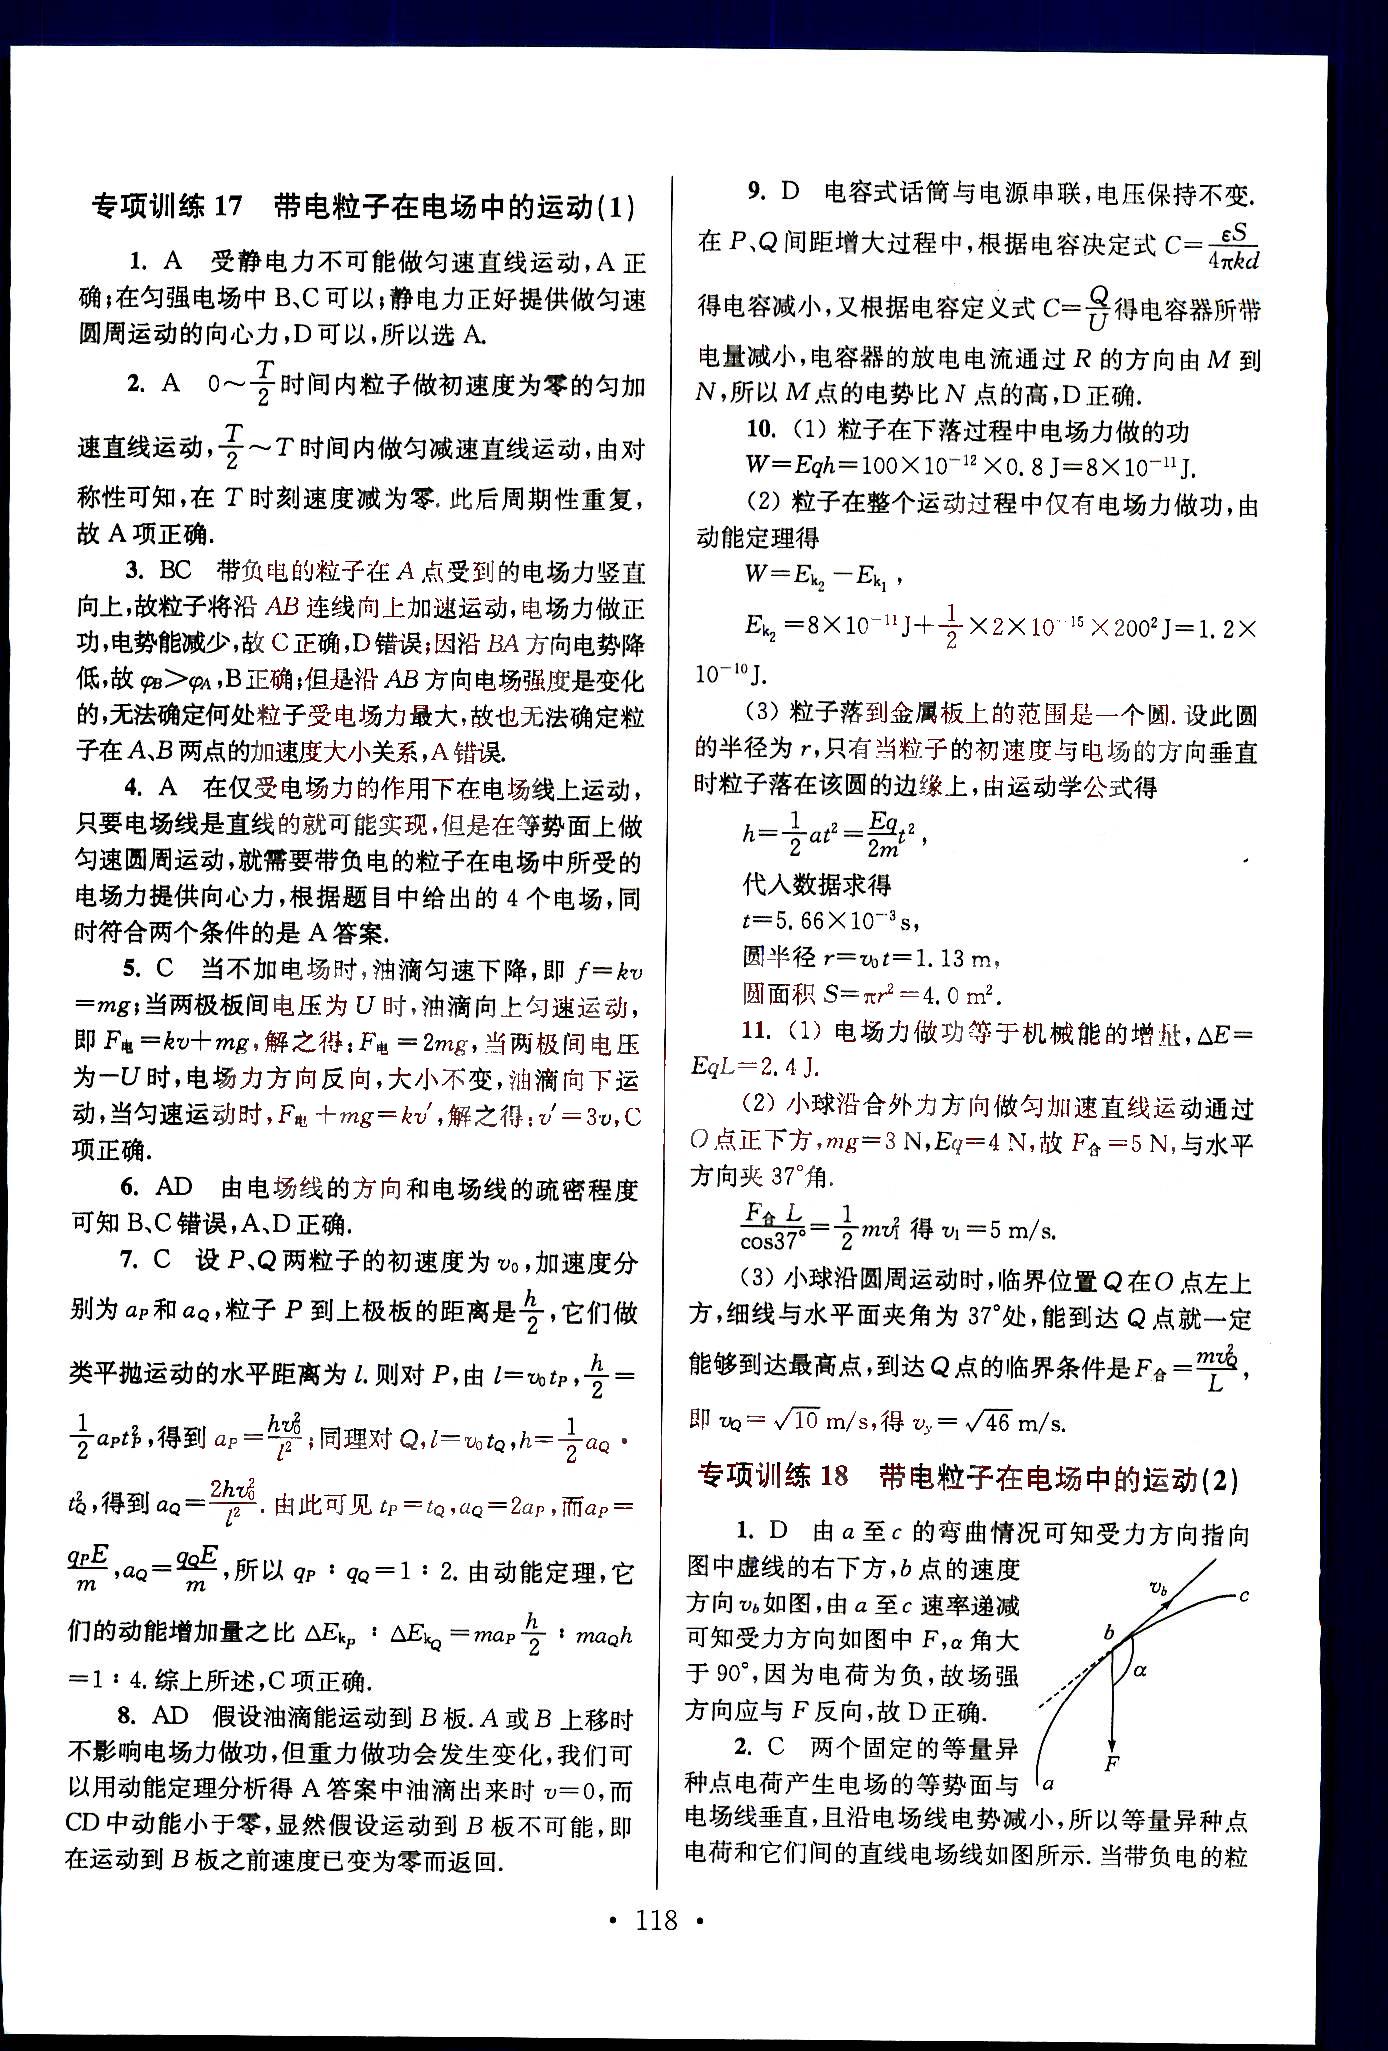 专项训练 17　带电粒子在电场中的运动(1)
1. A　受静电力不可能做匀速直线运动,A 正
确;在匀强电场中 B、C 可以;静电力正好提供做匀速
圆周运动的向心力,D 可以,所以选 A.
2. A　0～T/2时间内粒子做初速度为零的匀加
速直线运动,T/2～T 时间内做匀减速直线运动,由对
称性可知,在 T 时刻速度减为零. 此后周期性重复,
故 A 项正确.
3. BC　带负电的粒子在 A 点受到的电场力竖直
向上,故粒子将沿 AB 连线向上加速运动,电场力做正
功,电势能减少,故 C 正确,D 错误;因沿 BA 方向电势降
低,故 φB>φA,B 正确;但是沿 AB 方向电场强度是变化
的,无法确定何处粒子受电场力最大,故也无法确定粒
子在 A、B 两点的加速度大小关系,A 错误.
4. A　在仅受电场力的作用下在电场线上运动,
只要电场线是直线的就可能实现,但是在等势面上做
匀速圆周运动,就需要带负电的粒子在电场中所受的
电场力提供向心力,根据题目中给出的 4 个电场,同
时符合两个条件的是 A 答案.
5. C　当不加电场时,油滴匀速下降,即 f=kv
=mg;当两极板间电压为 U 时,油滴向上匀速运动,
即 F电=kv+mg,解之得:F电=2mg,当两极间电压
为−U 时,电场力方向反向,大小不变,油滴向下运
动,当匀速运动时,F电+mg=kv′,解之得:v′=3v,C
项正确.
6. AD　由电场线的方向和电场线的疏密程度
可知 B、C 错误,A、D 正确.
7. C　设 P、Q 两粒子的初速度为 v₀,加速度分
别为 aP和 aQ,粒子 P 到上极板的距离是h/2,它们做
类平抛运动的水平距离为 l. 则对 P,由 l=v₀tP,h/2=
1/2aPtP²,得到 aP=hv₀²/l²;同理对 Q,l=v₀tQ,h=1/2aQ·
tQ²,得到 aQ=2hv₀²/l². 由此可见 tP=tQ,aQ=2aP,而aP=
qPE/m,aQ=qQE/m,所以 qP∶qQ=1∶2. 由动能定理,它
们的动能增加量之比 ΔEkP∶ΔEkQ=maPh/2∶maQh
=1∶4. 综上所述,C 项正确.
8. AD　假设油滴能运动到 B 板. A 或 B 上移时
不影响电场力做功,但重力做功会发生变化,我们可
以用动能定理分析得 A 答案中油滴出来时 v=0,而
CD 中动能小于零,显然假设运动到 B 板不可能,即
在运动到 B 板之前速度已变为零而返回.
9. D　电容式话筒与电源串联,电压保持不变.
在 P、Q 间距增大过程中,根据电容决定式 C=εS/4πkd
得电容减小,又根据电容定义式 C=Q/U得电容器所带
电量减小,电容器的放电电流通过 R 的方向由 M 到
N,所以 M 点的电势比 N 点的高,D 正确.
10. (1) 粒子在下落过程中电场力做的功
W=Eqh=100×10⁻¹²×0.8 J=8×10⁻¹¹J.
(2) 粒子在整个运动过程中仅有电场力做功,由
动能定理得
W=Ek₂−Ek₁,
Ek₂=8×10⁻¹¹J+1/2×2×10⁻¹⁵×200²J=1.2×
10⁻¹⁰J.
(3) 粒子落到金属板上的范围是一个圆. 设此圆
的半径为 r,只有当粒子的初速度与电场的方向垂直
时粒子落在该圆的边缘上,由运动学公式得
h=1/2at²=Eq/2mt²,
代入数据求得
t=5.66×10⁻³s,
圆半径 r=v₀t=1.13 m,
圆面积 S=πr²=4.0 m².
11. (1) 电场力做功等于机械能的增量,ΔE=
EqL=2.4 J.
(2) 小球沿合外力方向做匀加速直线运动通过
O 点正下方,mg=3 N,Eq=4 N,故 F合=5 N,与水平
方向夹 37°角.
F合L/cos37°=1/2mv₁² 得 v₁=5 m/s.
(3) 小球沿圆周运动时,临界位置 Q 在 O 点左上
方,细线与水平面夹角为 37°处,能到达 Q 点就一定
能够到达最高点,到达 Q 点的临界条件是 F合=mvQ²/L,
即 vQ=√10 m/s,得 vy=√46 m/s.
专项训练 18　带电粒子在电场中的运动(2)
1. D　由 a 至 c 的弯曲情况可知受力方向指向
图中虚线的右下方,b 点的速度
方向 vb如图,由 a 至 c 速率递减
可知受力方向如图中 F,α 角大
于 90°,因为电荷为负,故场强
方向应与 F 反向,故 D 正确.
vb
c
b
α
F
a
2. C　两个固定的等量异
种点电荷产生电场的等势面与
电场线垂直,且沿电场线电势减小,所以等量异种点
电荷和它们间的直线电场线如图所示. 当带负电的粒
· 118 ·